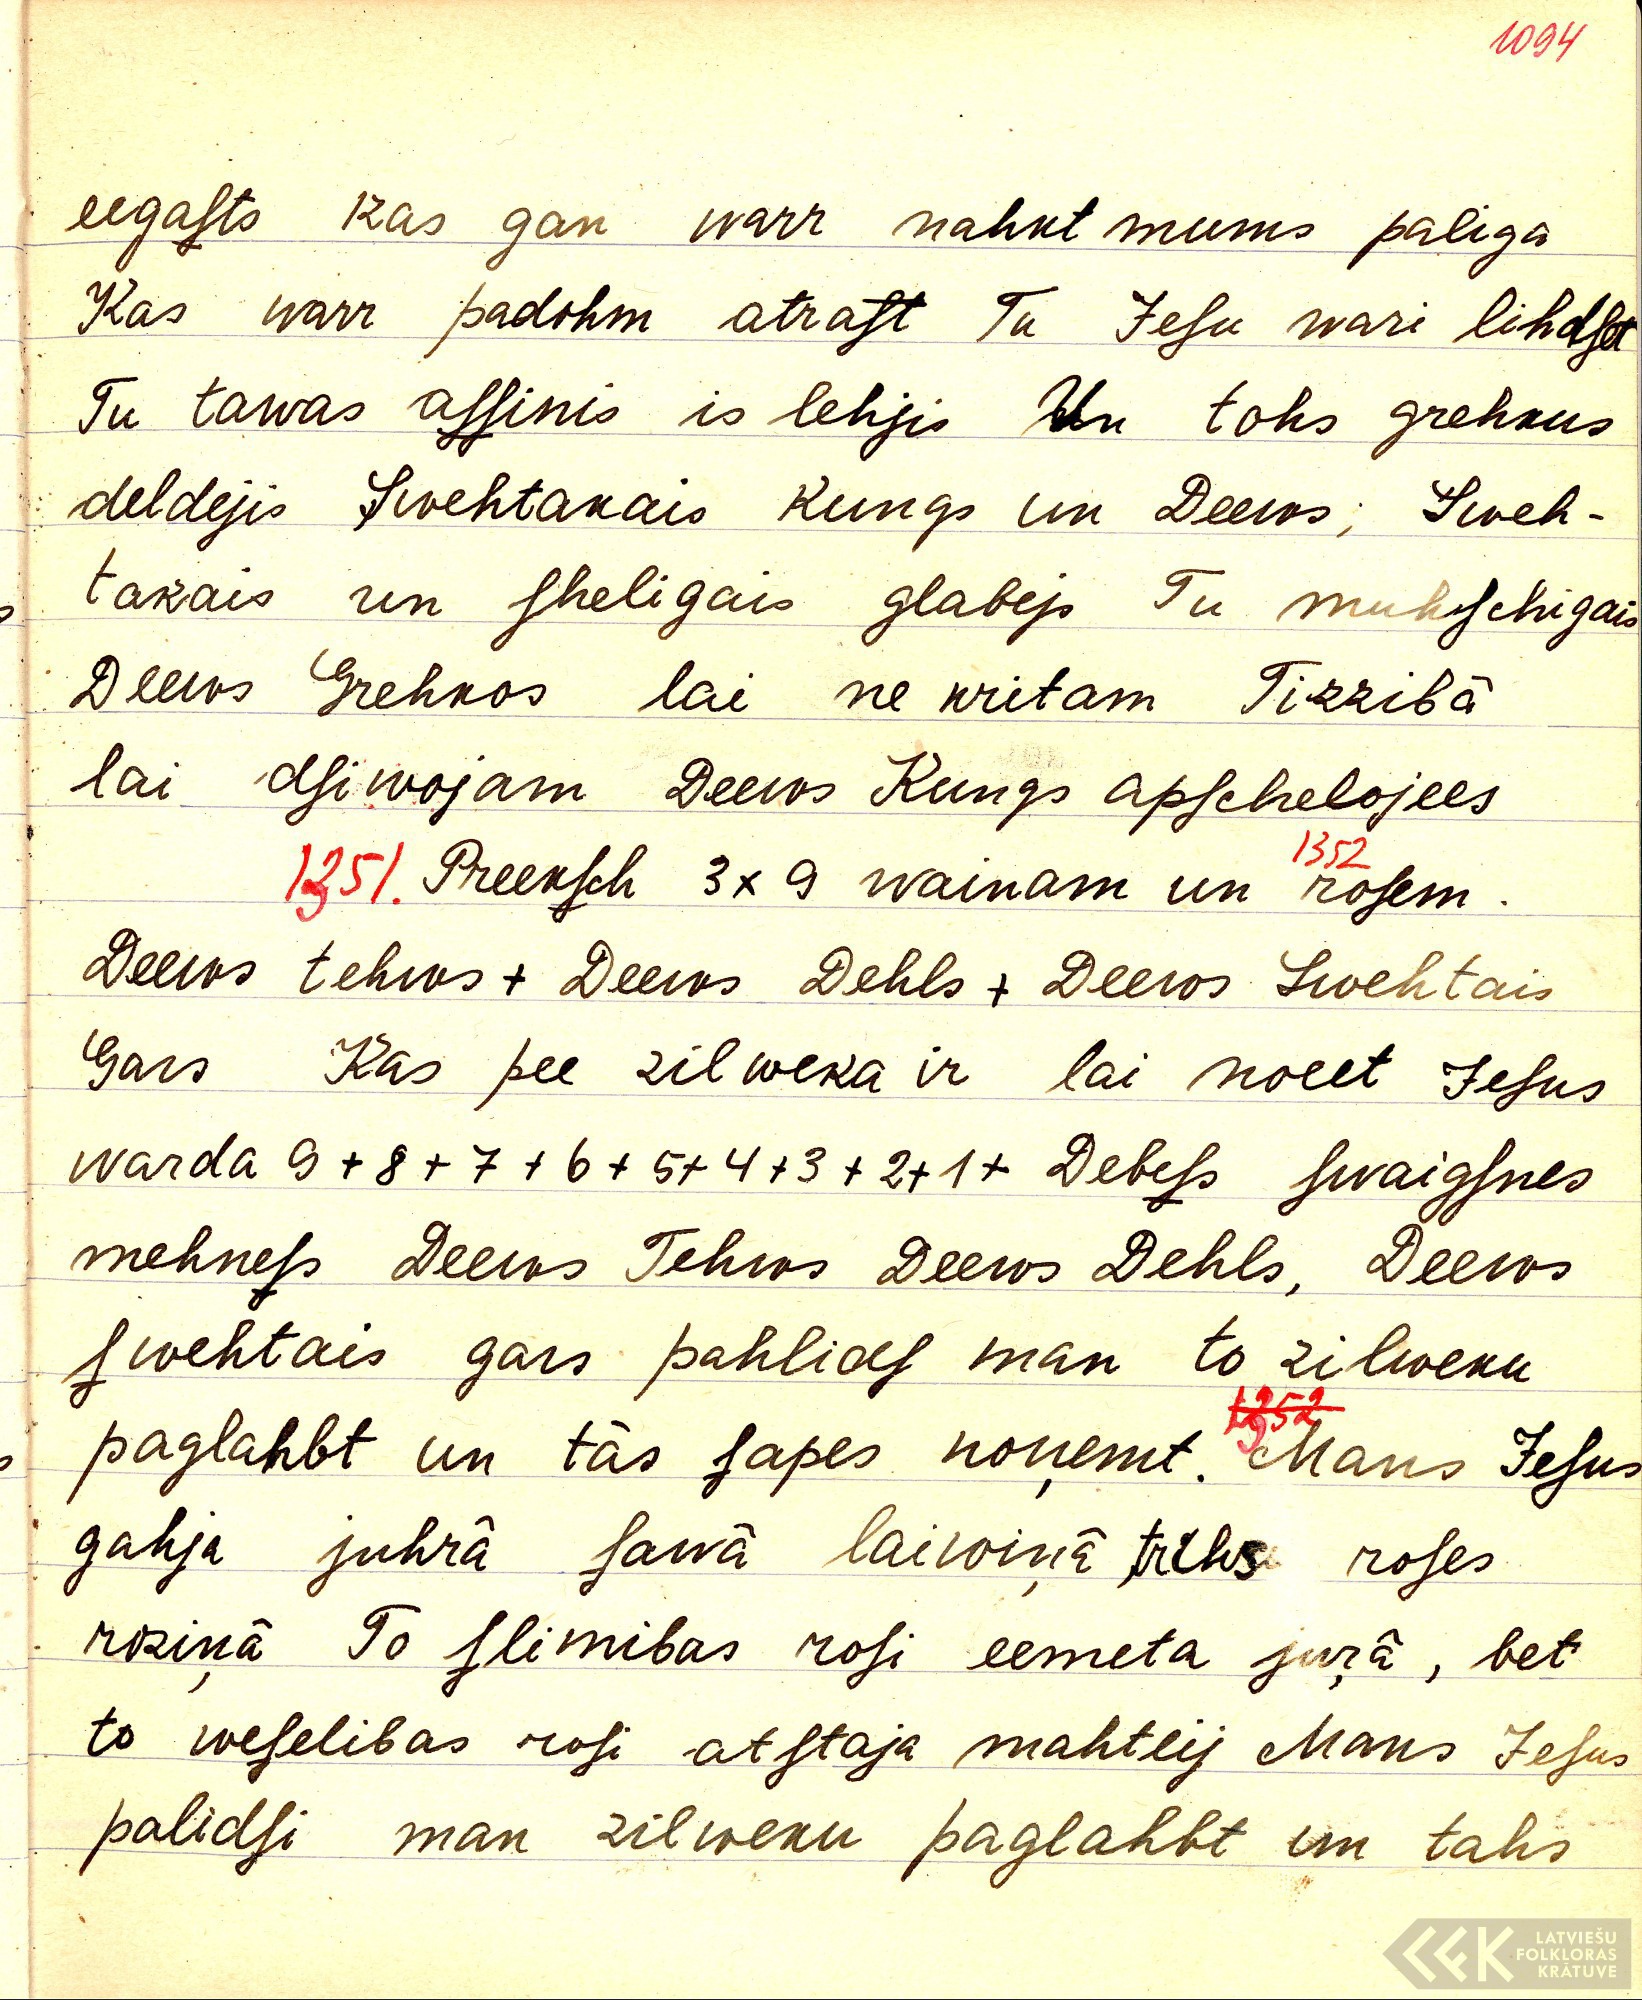 1094
eegaſts kas gan warr nahkt mums paliga
Kas warr padohm atraſt Tu Jeſu wari lihdſet
Tu tawas aſſinis is lehjis Un tohs grehkus
deldejis Swehtakais Kungs un Deews; Sweh-
takais un ſheligais glabejs Tu muhſchigais
Deews Grehkos lai ne kritam Tizzibâ
lai dſiwojam Deews Kungs apſchelojees
1351. Preekſch 3x9 wainam un roſem.
1352
Deews tehws + Deews Dehls + Deews Swehtais
Gars Kas pee zilweka ir lai noeet Jeſus
warda 9+8+7+6+5+4+3+2+1+ Debeſs ſwaigſnes
mehneſs Deews Tehws Deews Dehls, Deews
ſwehtais gars pahlidſ man to zilweku
1352
paglahbt un tās ſapes noņemt. Mans Jeſus
gahja juhrâ ſawâ laiwiņâ trihs roſes
roziņâ To ſlimibas roſi eemeta juŗâ, bet
to weſelibas roſi atſtaja mahteij Mans Jeſus
palidſi man zilweku paglahbt un tahs
LATVIEŠU
FOLKLORAS
KRĀTUVE